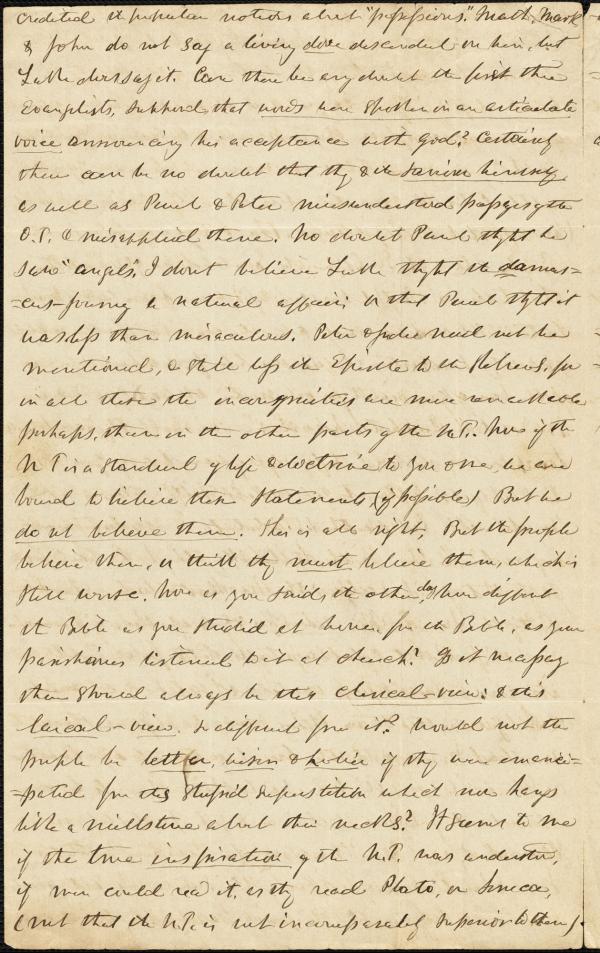 credited the popular notions about "possessions". Math, Mark
& John do not say a living dove descended on him, but
Luke does say it. Can there be any doubt the first three
Evangelists, supposed that words were spoken in an articulate
voice announcing his acceptance with God? Certainly
there can be no doubt that they & the Saviour himself
as well as Paul & Peter misunderstood passages of the
O.T. & misapplied them. No doubt Paul tho't he
saw "angels", I don't believe Luke tho't the damas-
=cus-journey a natural affair; or that Paul tho't it
was less than miraculous. Peter & Jude need not be
mentioned, & still less the Epistle to the Hebrews, for
in all these the incongruities are more remarkable
perhaps, than in the other parts of the N.T. Now if the
N T is a standard of life & doctrine to you & me, we are
bound to believe these statements (if possible) But we
do not believe them. This is all right, But the people
believe them, or think they must believe them, which is
still worse. Now as you said, the other day, how different
the Bible as you studied at home, from the Bible, as your
parishioners listened to it at church? Is it necessary
there should always be this clerical-view; & this
laical-view, so different from it? Would not the
people be better, wiser & holier if they were emanci=
=pated from this stupid superstition which now hangs
like a millstone about their necks? It seems to me
if the true inspiration of the N.T. was understood,
if men could read it, as they read Plato, or Seneca,
(not that the N.T. is not incomparably superior to them).